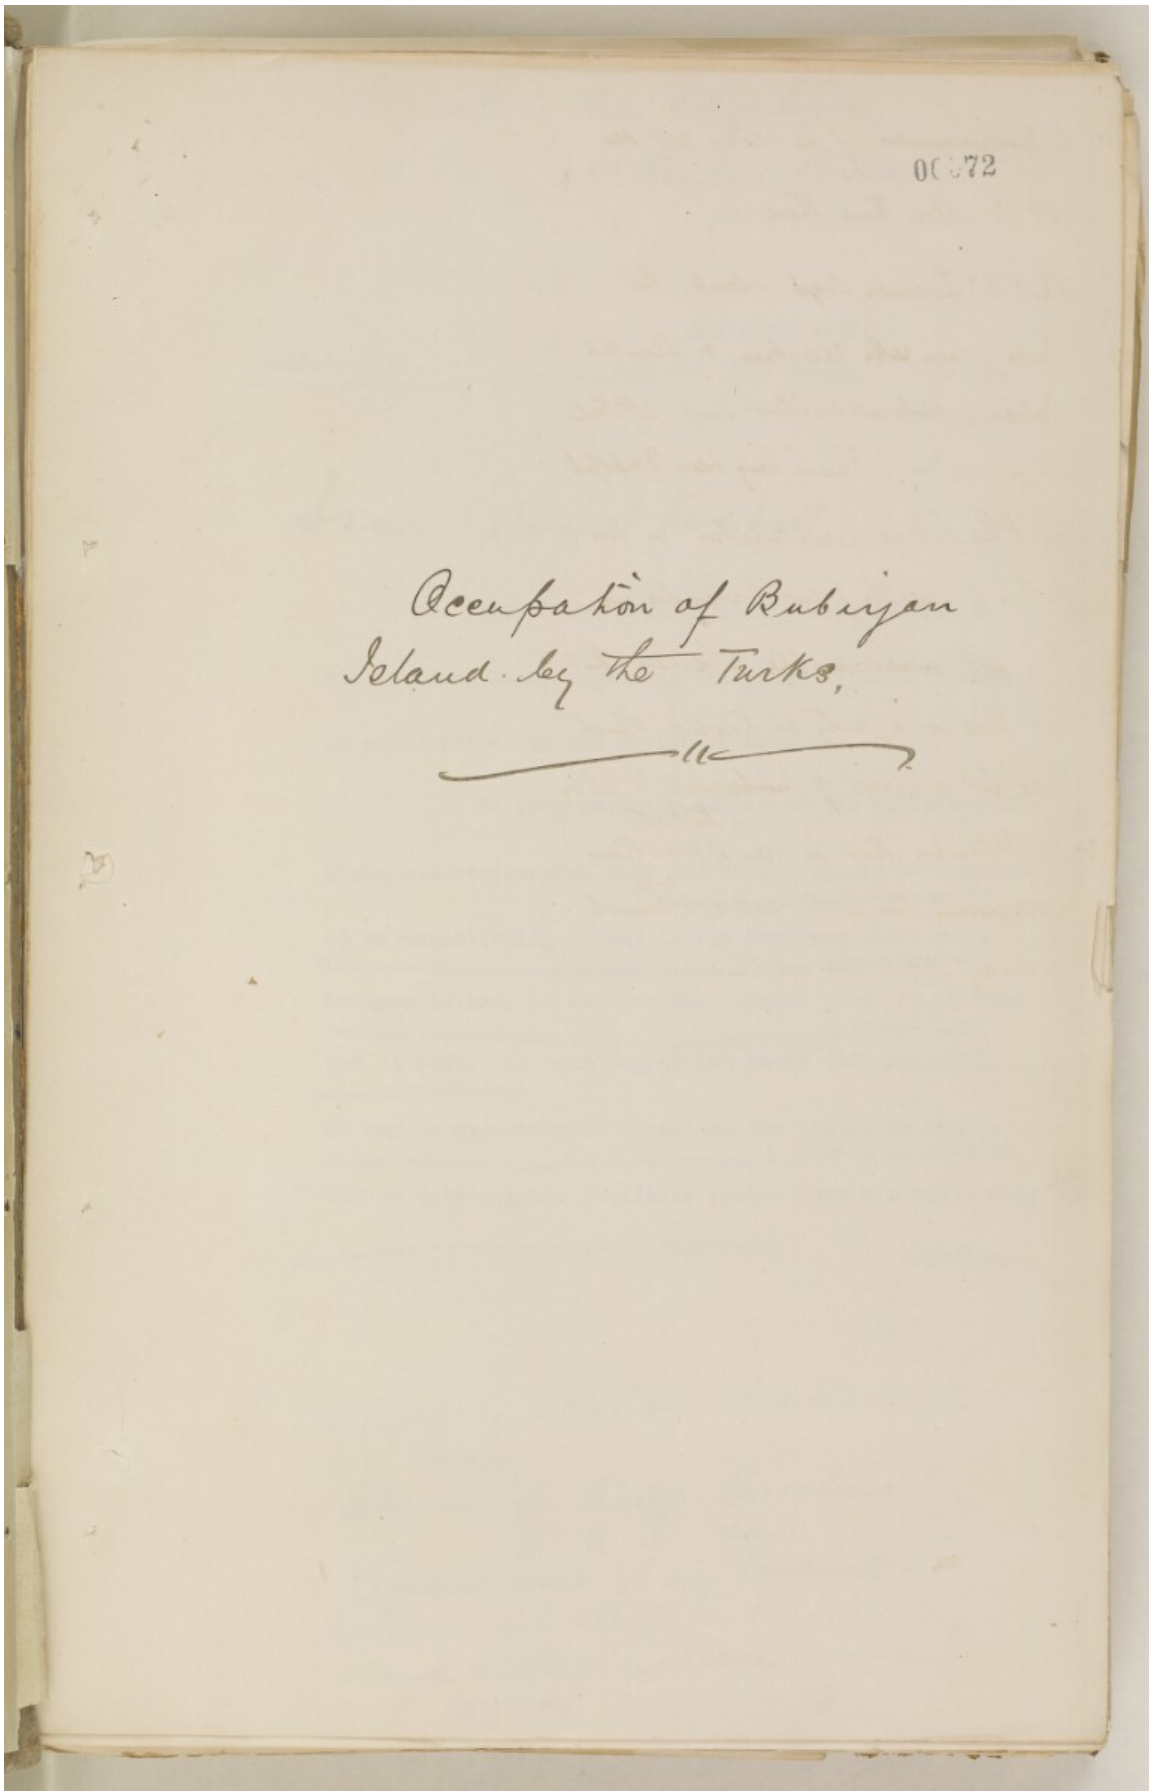 Occupation of Bubiyan
Island by the Turks,